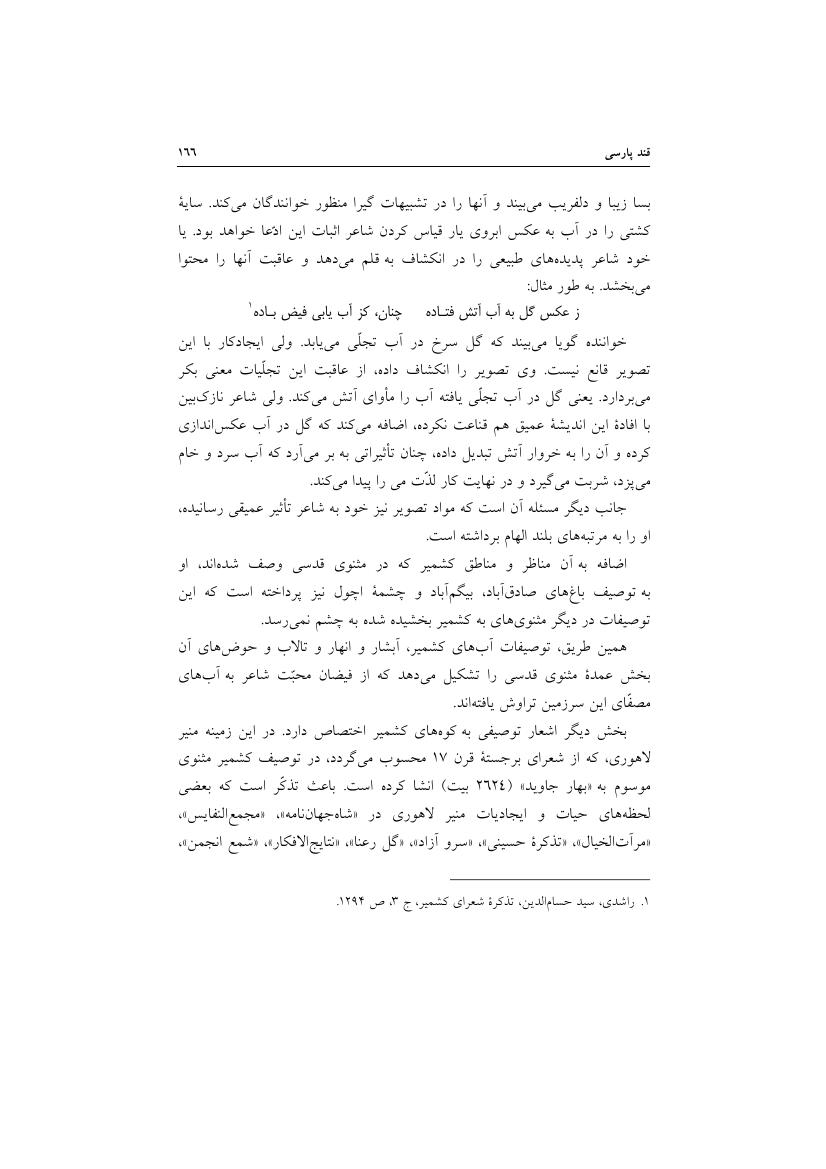 قند پارسی ١٦٦
بسا زیبا و دلفریب می‌بیند و آنها را در تشبیهات گیرا منظور خوانندگان می‌کند. سایهٔ
کشتی را در آب به عکس ابروی یار قیاس کردن شاعر اثبات این ادّعا خواهد بود. یا
خود شاعر پدیده‌های طبیعی را در انکشاف به قلم می‌دهد و عاقبت آنها را محتوا
می‌بخشد. به طور مثال:
ز عکس گل به آب آتش فتـاده چنان، کز آب یابی فیض بـاده١
خواننده گویا می‌بیند که گل سرخ در آب تجلّی می‌یابد. ولی ایجادکار با این
تصویر قانع نیست. وی تصویر را انکشاف داده، از عاقبت این تجلّیات معنی بکر
می‌بردارد. یعنی گل در آب تجلّی یافته آب را مأوای آتش می‌کند. ولی شاعر نازک‌بین
با افادهٔ این اندیشهٔ عمیق هم قناعت نکرده، اضافه می‌کند که گل در آب عکس‌اندازی
کرده و آن را به خروار آتش تبدیل داده، چنان تأثیراتی به بر می‌آرد که آب سرد و خام
می‌پزد، شربت می‌گیرد و در نهایت کار لذّت می را پیدا می‌کند.
جانب دیگر مسئله آن است که مواد تصویر نیز خود به شاعر تأثیر عمیقی رسانیده،
او را به مرتبه‌های بلند الهام برداشته است.
اضافه به آن مناظر و مناطق کشمیر که در مثنوی قدسی وصف شده‌اند، او
به توصیف باغ‌های صادق‌آباد، بیگم‌آباد و چشمهٔ اچول نیز پرداخته است که این
توصیفات در دیگر مثنوی‌های به کشمیر بخشیده شده به چشم نمی‌رسد.
همین طریق، توصیفات آب‌های کشمیر، آبشار و انهار و تالاب و حوض‌های آن
بخش عمدهٔ مثنوی قدسی را تشکیل می‌دهد که از فیضان محبّت شاعر به آب‌های
مصفّای این سرزمین تراوش یافته‌اند.
بخش دیگر اشعار توصیفی به کوه‌های کشمیر اختصاص دارد. در این زمینه منیر
لاهوری، که از شعرای برجستهٔ قرن ١٧ محسوب می‌گردد، در توصیف کشمیر مثنوی
موسوم به «بهار جاوید» (٢٦٢٤ بیت) انشا کرده است. باعث تذکّر است که بعضی
لحظه‌های حیات و ایجادیات منیر لاهوری در «شاه‌جهان‌نامه»، «مجمع‌النفایس»،
«مرآت‌الخیال»، «تذکرهٔ حسینی»، «سرو آزاد»، «گل رعنا»، «نتایج‌الافکار»، «شمع انجمن»،
١. راشدی، سید حسام‌الدین، تذکرهٔ شعرای کشمیر، ج ۳، ص ۱۲۹۴.